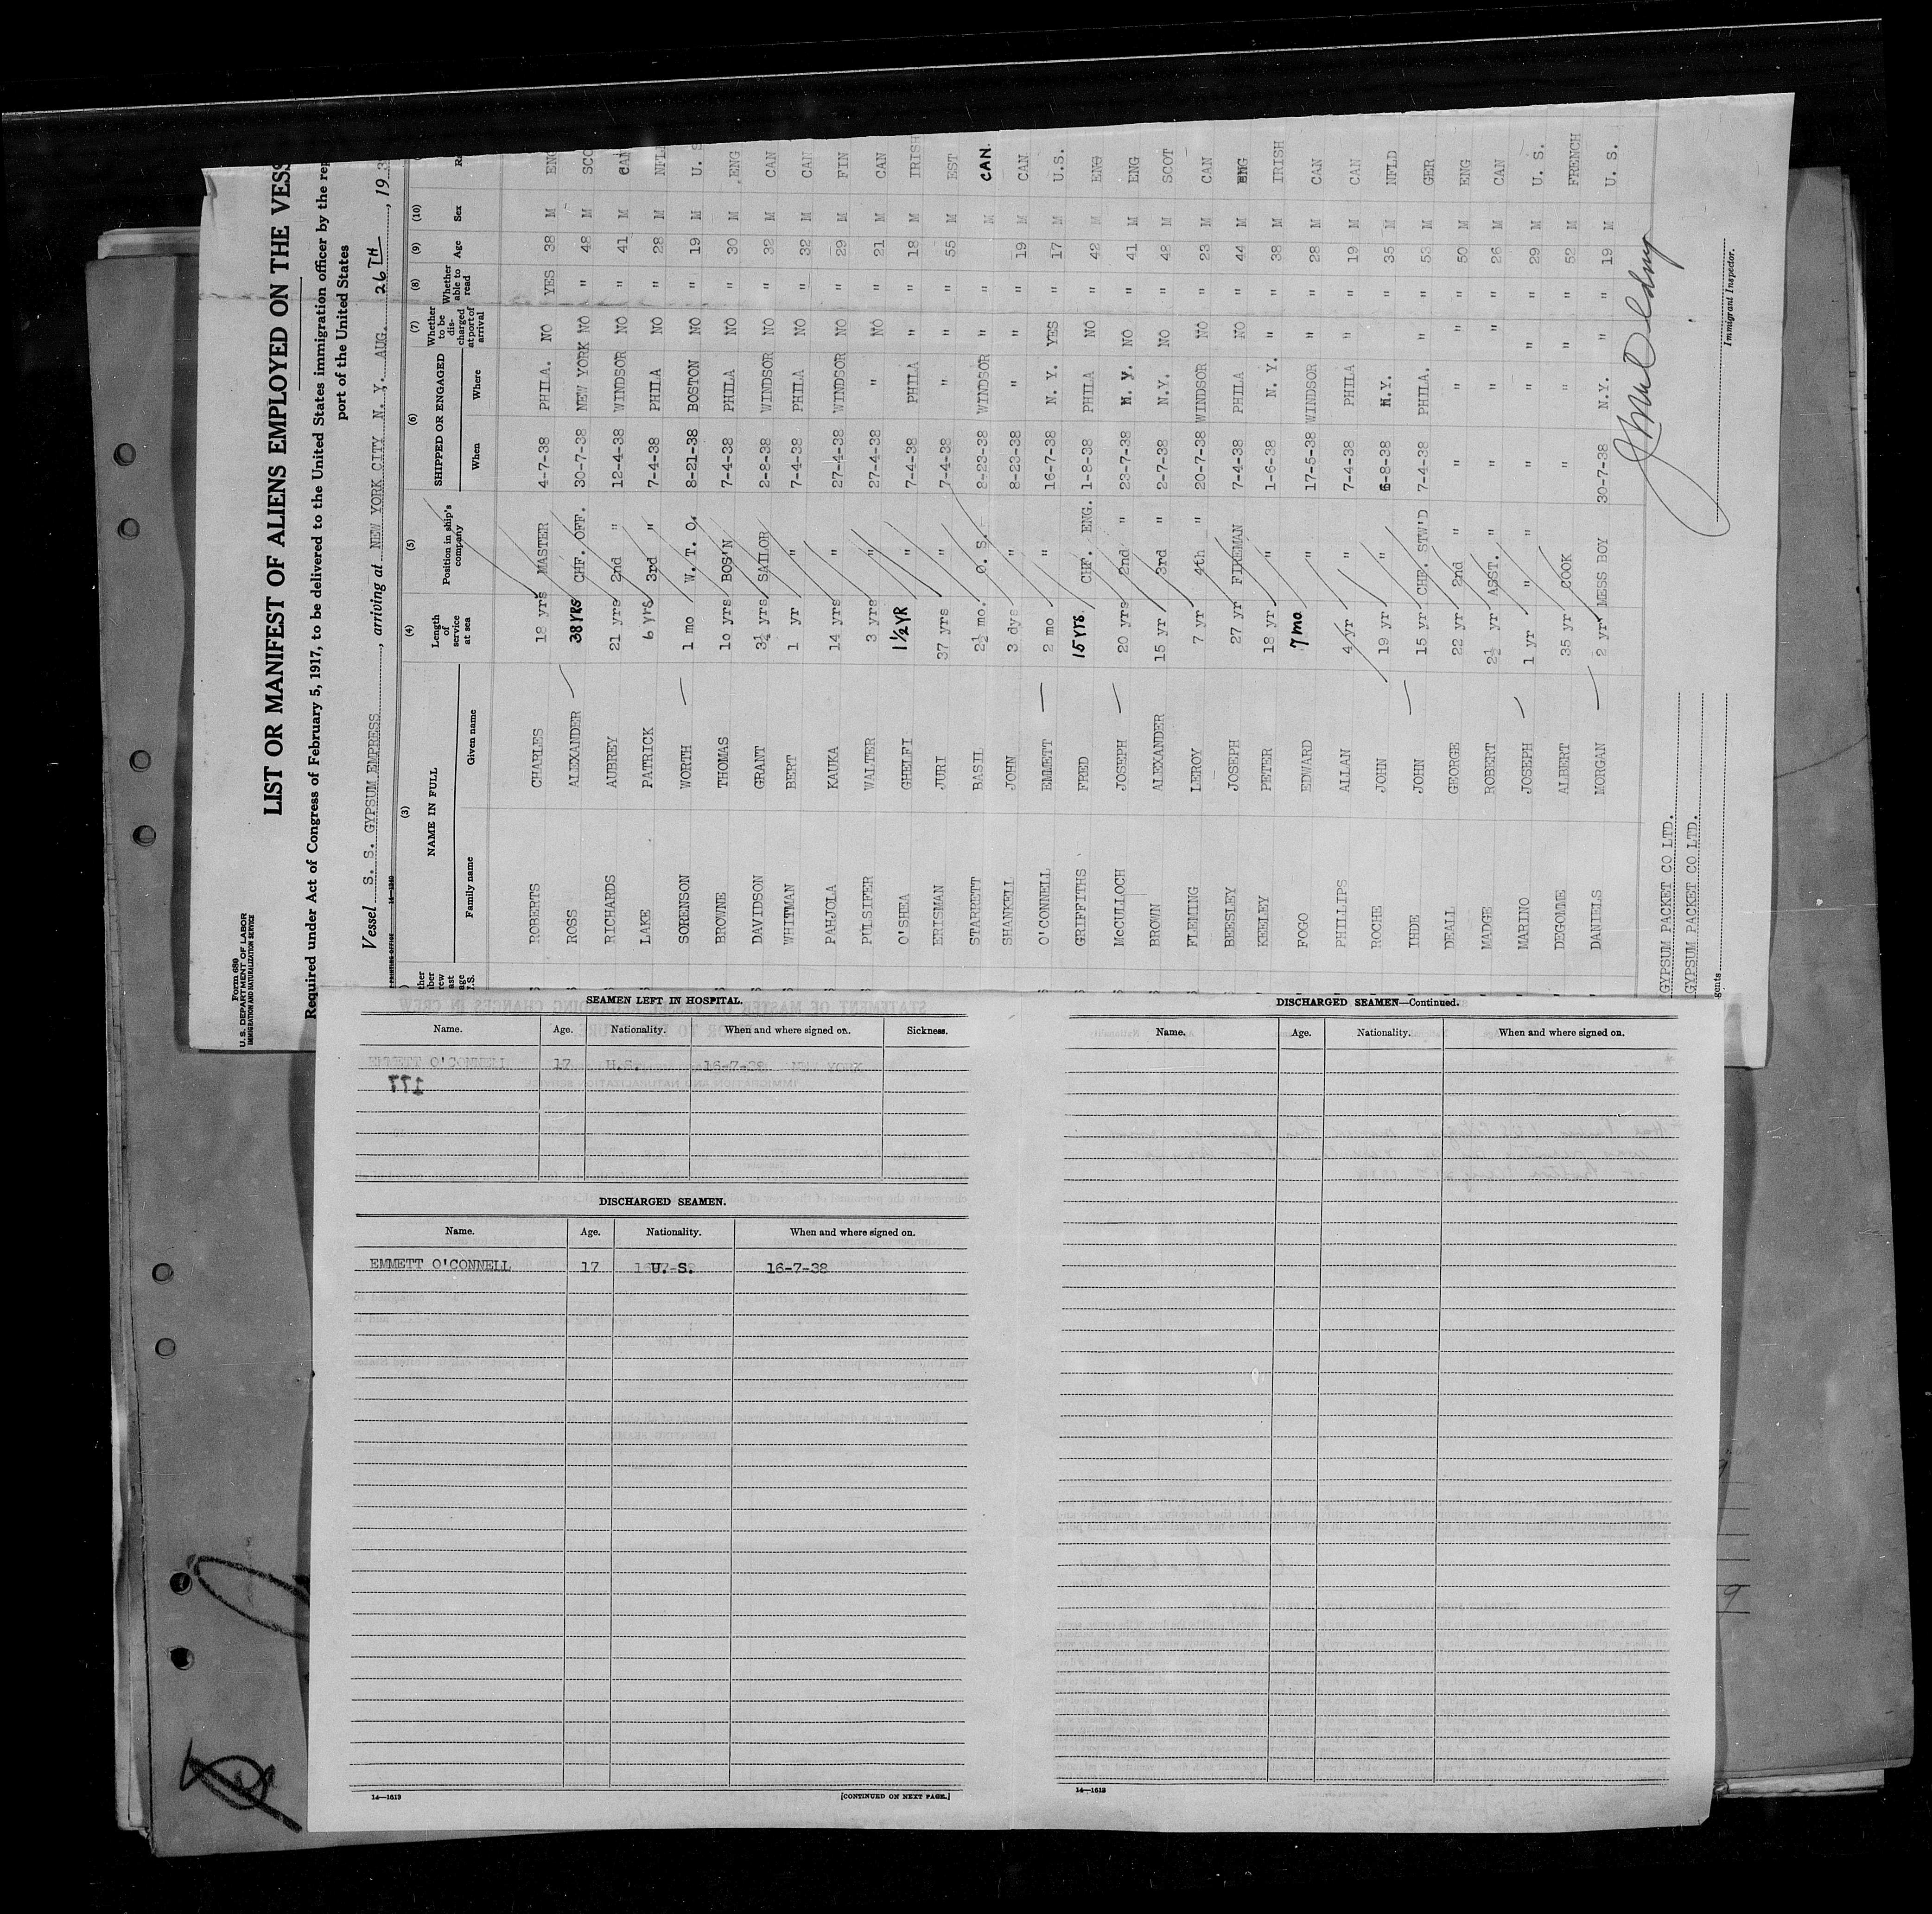 Form 680
U. S. DEPARTMENT OF LABOR
IMMIGRATION AND NATURALIZATION SERVICE
LIST OR MANIFEST OF ALIENS EMPLOYED ON THE VESS
Required under Act of Congress of February 5, 1917, to be delivered to the United States immigration officer by the rep
port of the United States
Vessel S. S. GYPSUM EMPRESS, arriving at NEW YORK CITY N. Y. AUG. 26TH, 193
(3) (4) (5) (6) (7) (8) (9) (10)
NAME IN FULL Length of service at sea Position in ship's company SHIPPED OR ENGAGED Whether to be discharged at port of arrival Whether able to read Age Sex
Family name Given name When Where
ROBERTS CHARLES 18 yrs MASTER 4-7-38 PHILA. NO YES 38 M ENG
ROSS ALEXANDER 38 YRS CHF. OFF. 30-7-38 NEW YORK NO " 48 M SCO
RICHARDS AUBREY 21 yrs 2nd " 12-4-38 WINDSOR NO " 41 M CAN
LAKE PATRICK 6 yrs 3rd " 7-4-38 PHILA NO " 28 M NFL
SORENSON WORTH 1 mo W. T. O. 8-21-38 BOSTON NO " 19 M U. S
BROWNE THOMAS 10 yrs BOS'N 7-4-38 PHILA NO " 30 M ENG
DAVIDSON GRANT 3½ yrs SAILOR 2-8-38 WINDSOR NO " 32 M CAN
WHITMAN BERT 1 yr " 7-4-38 PHILA NO " 32 M CAN
PAHJOLA KAUKA 14 yrs " 27-4-38 WINDSOR NO " 29 M FIN
PULSIFER WALTER 3 yrs " 27-4-38 " NO " 21 M CAN
O'SHEA GHELFI 1½ YR " 7-4-38 PHILA " " 18 M IRISH
ERISMAN JURI 37 yrs " 7-4-38 " " " 55 M EST
STARRETT BASIL 2½ mo. O. S. 8-23-38 WINDSOR " " M CAN.
SHANKELL JOHN 3 dys " 8-23-38 " " " 19 M CAN
O'CONNELL EMMETT 2 mo " 16-7-38 N. Y. YES " 17 M U.S.
GRIFFITHS FRED 15 YRS. CHF. ENG. 1-8-38 PHILA NO " 42 M ENG
McCULLOCH JOSEPH 20 yrs 2nd " 23-7-38 N. Y. NO " 41 M ENG
BROWN ALEXANDER 15 yr 3rd " 2-7-38 N.Y. NO " 48 M SCOT
FLEMING LEROY 7 yr 4th " 20-7-38 WINDSOR NO " 23 M CAN
BEESLEY JOSEPH 27 yr FIREMAN 7-4-38 PHILA NO " 44 M ENG
KEELEY PETER 18 yr " 1-6-38 N. Y. " " 38 M IRISH
FOGO EDWARD 7 mo " 17-5-38 WINDSOR " " 28 M CAN
PHILLIPS ALLAN 4 yr " 7-4-38 PHILA " " 19 M CAN
ROCHE JOHN 19 yr " 6-8-38 N.Y. " 35 M NFLD
IHDE JOHN 15 yr CHF. STW'D 7-4-38 PHILA. " " 53 M GER
DEALL GEORGE 22 yr 2nd " " " " " 50 M ENG
MADGE ROBERT 2½ yr ASST. " " " " " 26 M CAN
MARINO JOSEPH 1 yr " " " " " " 29 M U. S.
DEGOMME ALBERT 35 yr COOK " " " " 52 M FRENCH
DANIELS MORGAN 2 yr MESS BOY 30-7-38 N.Y. " " 19 M U. S.
GYPSUM PACKET CO LTD.
GYPSUM PACKET CO LTD.
gents
Immigrant Inspector.
SEAMEN LEFT IN HOSPITAL.
Name. Age. Nationality. When and where signed on. Sickness.
EMMETT O'CONNELL 17 U.S. 16-7-38 NEW YORK
177
DISCHARGED SEAMEN.
Name. Age. Nationality. When and where signed on.
EMMETT O'CONNELL 17 U. S. 16-7-38
14—1613 [CONTINUED ON NEXT PAGE.]
DISCHARGED SEAMEN—Continued.
Name. Age. Nationality. When and where signed on.
14—1613